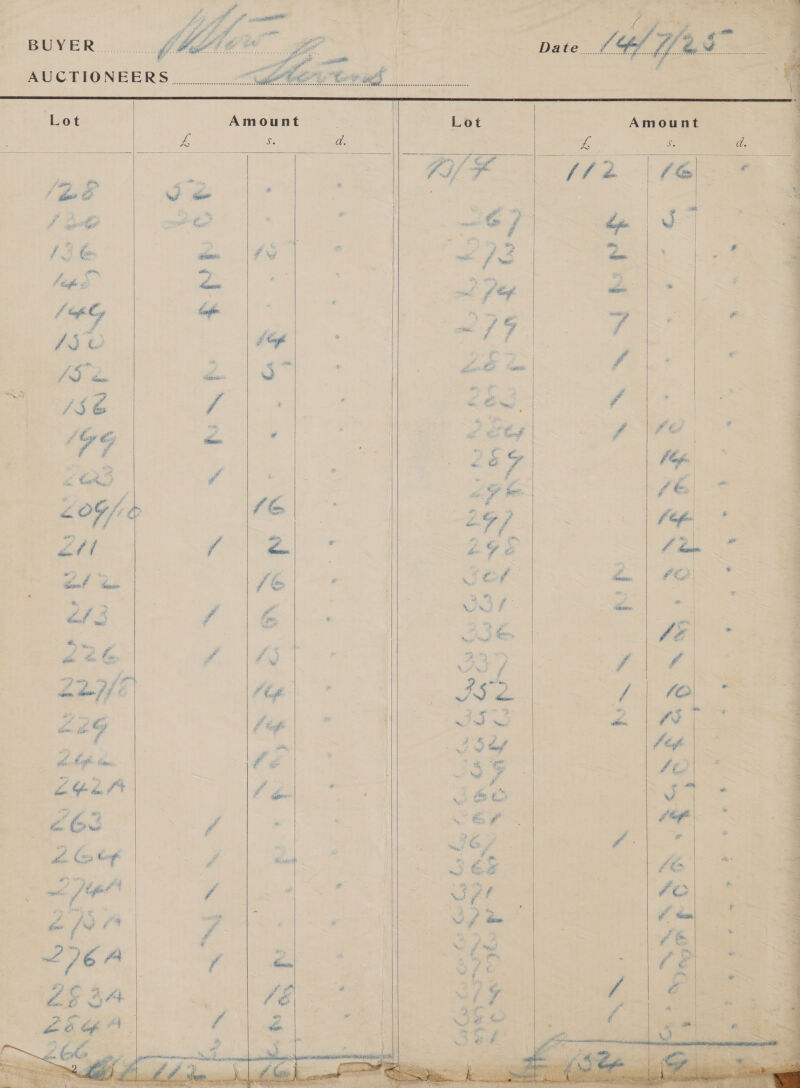 BUYER
Date 14/7/25
AUCTIONEERS Stevens
Lot Amount
£ s. d.
128 52 . .
130 20 . .
136 2 15 .
145 2 . .
149 4 . .
150 14 .
152 2 5 .
156 1 . .
199 2 . .
203 1 . .
209/10 16
211 1 2 .
212 16 .
213 1 6 .
226 1 15 .
227/8 14 .
229 14 .
242 18 .
242A 12 .
263 1 . .
264 1 2 .
274A 1 . .
275A 7 . .
276A 1 2 .
283A 18 .
284A 1 2 .
266 3 5
112 16
Lot Amount
£ s. d.
B/F 112 16 .
267 4 5
273 2 . .
274 2 .
279 7 . .
282 1 . .
283 1 .
284 1 10 .
289 14 .
296 16 .
297 14 .
298 12 .
301 2 10 .
331 2 .
336 18 .
337 1 1
352 1 10 .
353 2 15 .
354 14 .
359 10 .
360 5 .
361 14 .
367 1 . .
368 16 .
371 10 .
372 12 .
373 16 .
378 18 .
379 1 8 .
380 1 .
381 5 .
£ 154 9 .